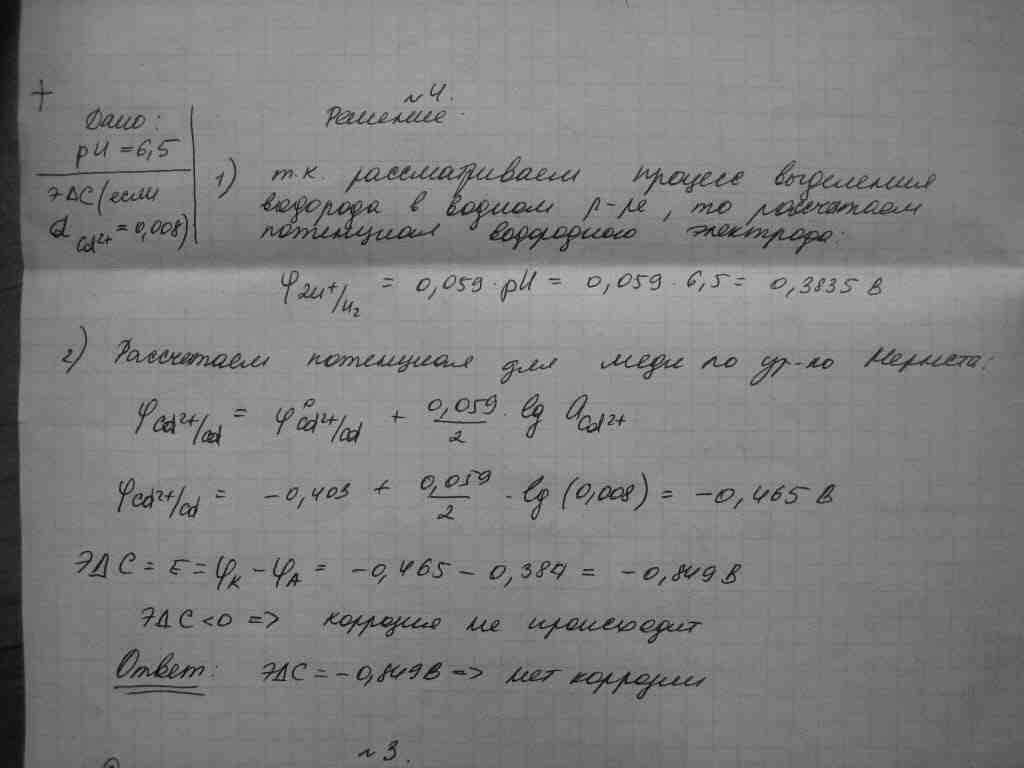 +
№4.
Дано:
Решение:
pH = 6,5
ЭДС (если
a Cd²⁺ = 0,008)
1) т.к. рассматриваем процесс выделения
водорода в водном р-ре, то рассчитаем
потенциал водородного электрода:
φ 2H⁺/H₂ = 0,059 · pH = 0,059 · 6,5 = 0,3835 В
2) Рассчитаем потенциал для меди по ур-ю Нернста:
φ Cd²⁺/Cd = φ° Cd²⁺/Cd + 0,059/2 · lg a Cd²⁺
φ Cd²⁺/Cd = -0,403 + 0,059/2 · lg (0,008) = -0,465 В
ЭДС = E = φК - φА = -0,465 - 0,384 = -0,849 В
ЭДС < 0 => коррозия не происходит
Ответ: ЭДС = -0,849 В => нет коррозии
№3.